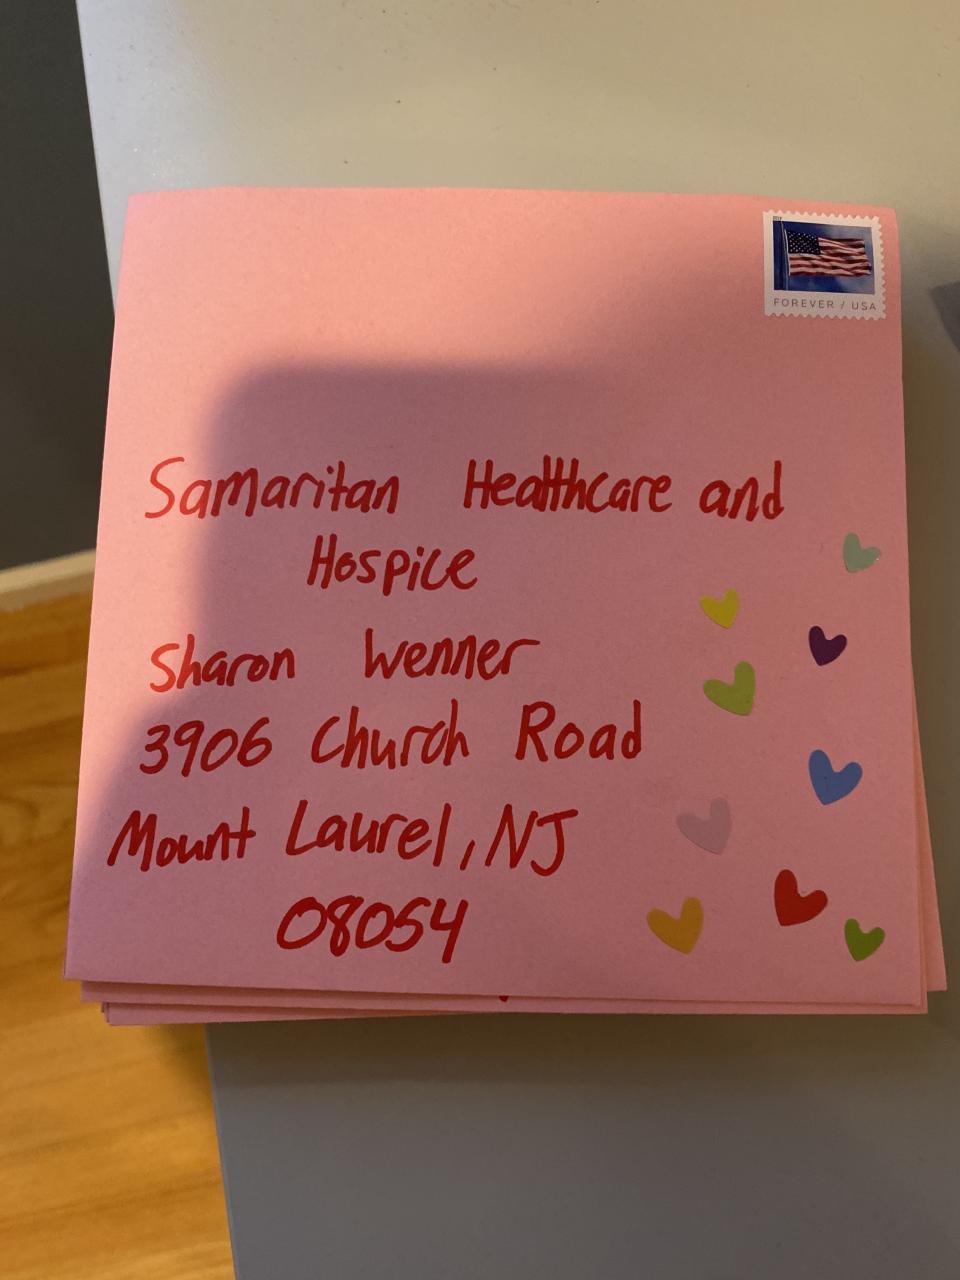 FOREVER / USA
Samaritan Healthcare and
Hospice
Sharon Wenner
3906 Church Road
Mount Laurel, NJ
08054